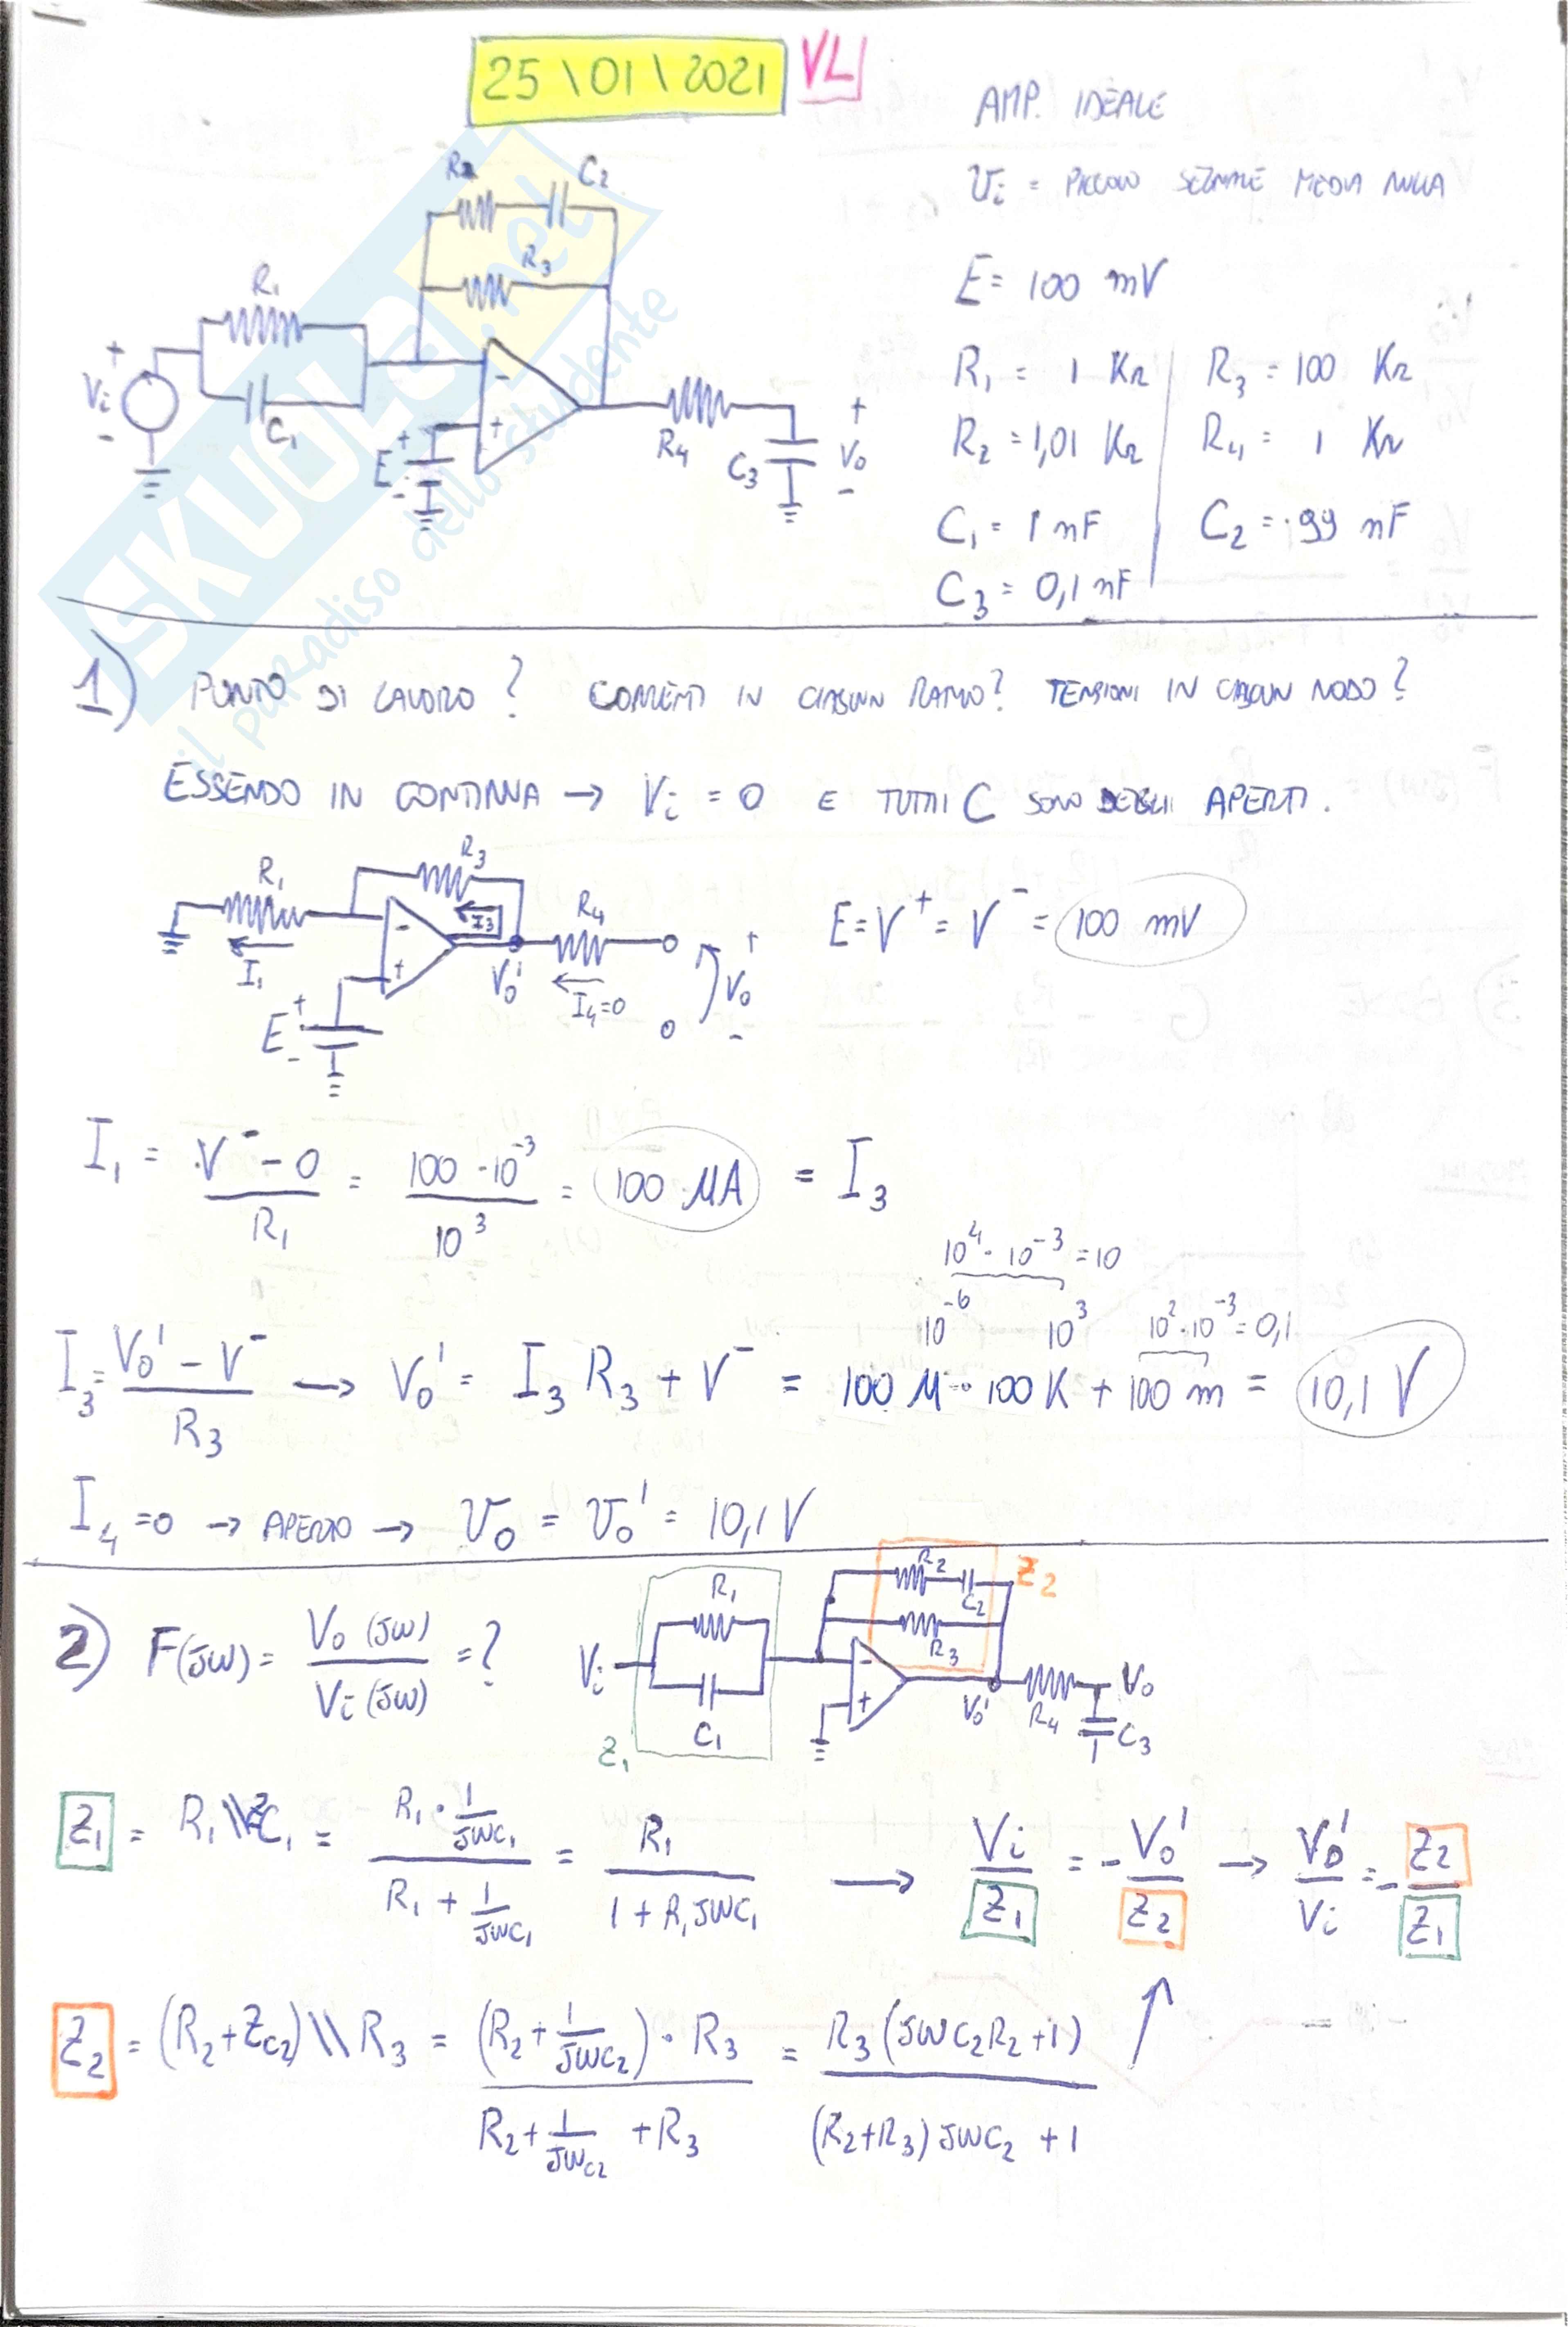 25\01\2021 VL
AMP. IDEALE
Vi = PICCOLO SEGNALE MEDIA NULLA
E = 100 mV
R1 = 1 KΩ R3 = 100 KΩ
R2 = 1,01 KΩ R4 = 1 KΩ
C1 = 1 nF C2 = .99 nF
C3 = 0,1 nF
R2 C2
R3
R1
+ Vi -
C1
- +
E + -
R4
C3
+ Vo -
SKUOLA.net
il paradiso dello studente
1) PUNTO DI LAVORO? CORRENTI IN CIASCUN RAMO? TENSIONI IN CIASCUN NODO?
ESSENDO IN CONTINUA → Vi = 0 E TUTTI C SONO DEGLI APERTI.
R3
R1
I3
R4
- +
I1
Vo'
I4=0
+ Vo -
E + -
E = V+ = V- = 100 mV
I1 = (V- - 0)/R1 = (100 · 10^-3)/10^3 = 100 μA = I3
10^4 · 10^-3 = 10
10^-6 10^3 10^2 · 10^-3 = 0,1
I3 = (Vo' - V-)/R3 → Vo' = I3 R3 + V- = 100 μ · 100 K + 100 m = 10,1 V
I4 = 0 → APERTO → Vo = Vo' = 10,1 V
2) F(jw) = Vo (jw)/Vi (jw) = ?
R2 C2 Z2
R1
R3
Vi
C1
Z1
- +
Vo'
R4
Vo
C3
Z1 = R1 \\ ZC1 = (R1 · 1/jwC1)/(R1 + 1/jwC1) = R1/(1 + R1jwC1) → Vi/Z1 = - Vo'/Z2 → Vo'/Vi = - Z2/Z1
Z2 = (R2 + ZC2) \\ R3 = ((R2 + 1/jwC2) · R3)/(R2 + 1/jwC2 + R3) = R3 (jwC2R2 + 1)/((R2 + R3) jwC2 + 1) ↑